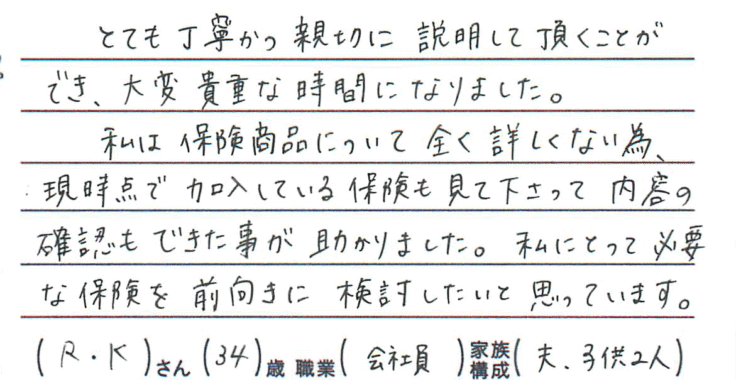 とても丁寧かつ親切に説明して頂くことが
でき、大変貴重な時間になりました。
私は保険商品について全く詳しくない為、
現時点で加入している保険も見て下さって内容の
確認もできた事が助かりました。私にとって必要
な保険を前向きに検討したいと思っています。
(R・K)さん(34)歳 職業(会社員)家族構成(夫、子供2人)